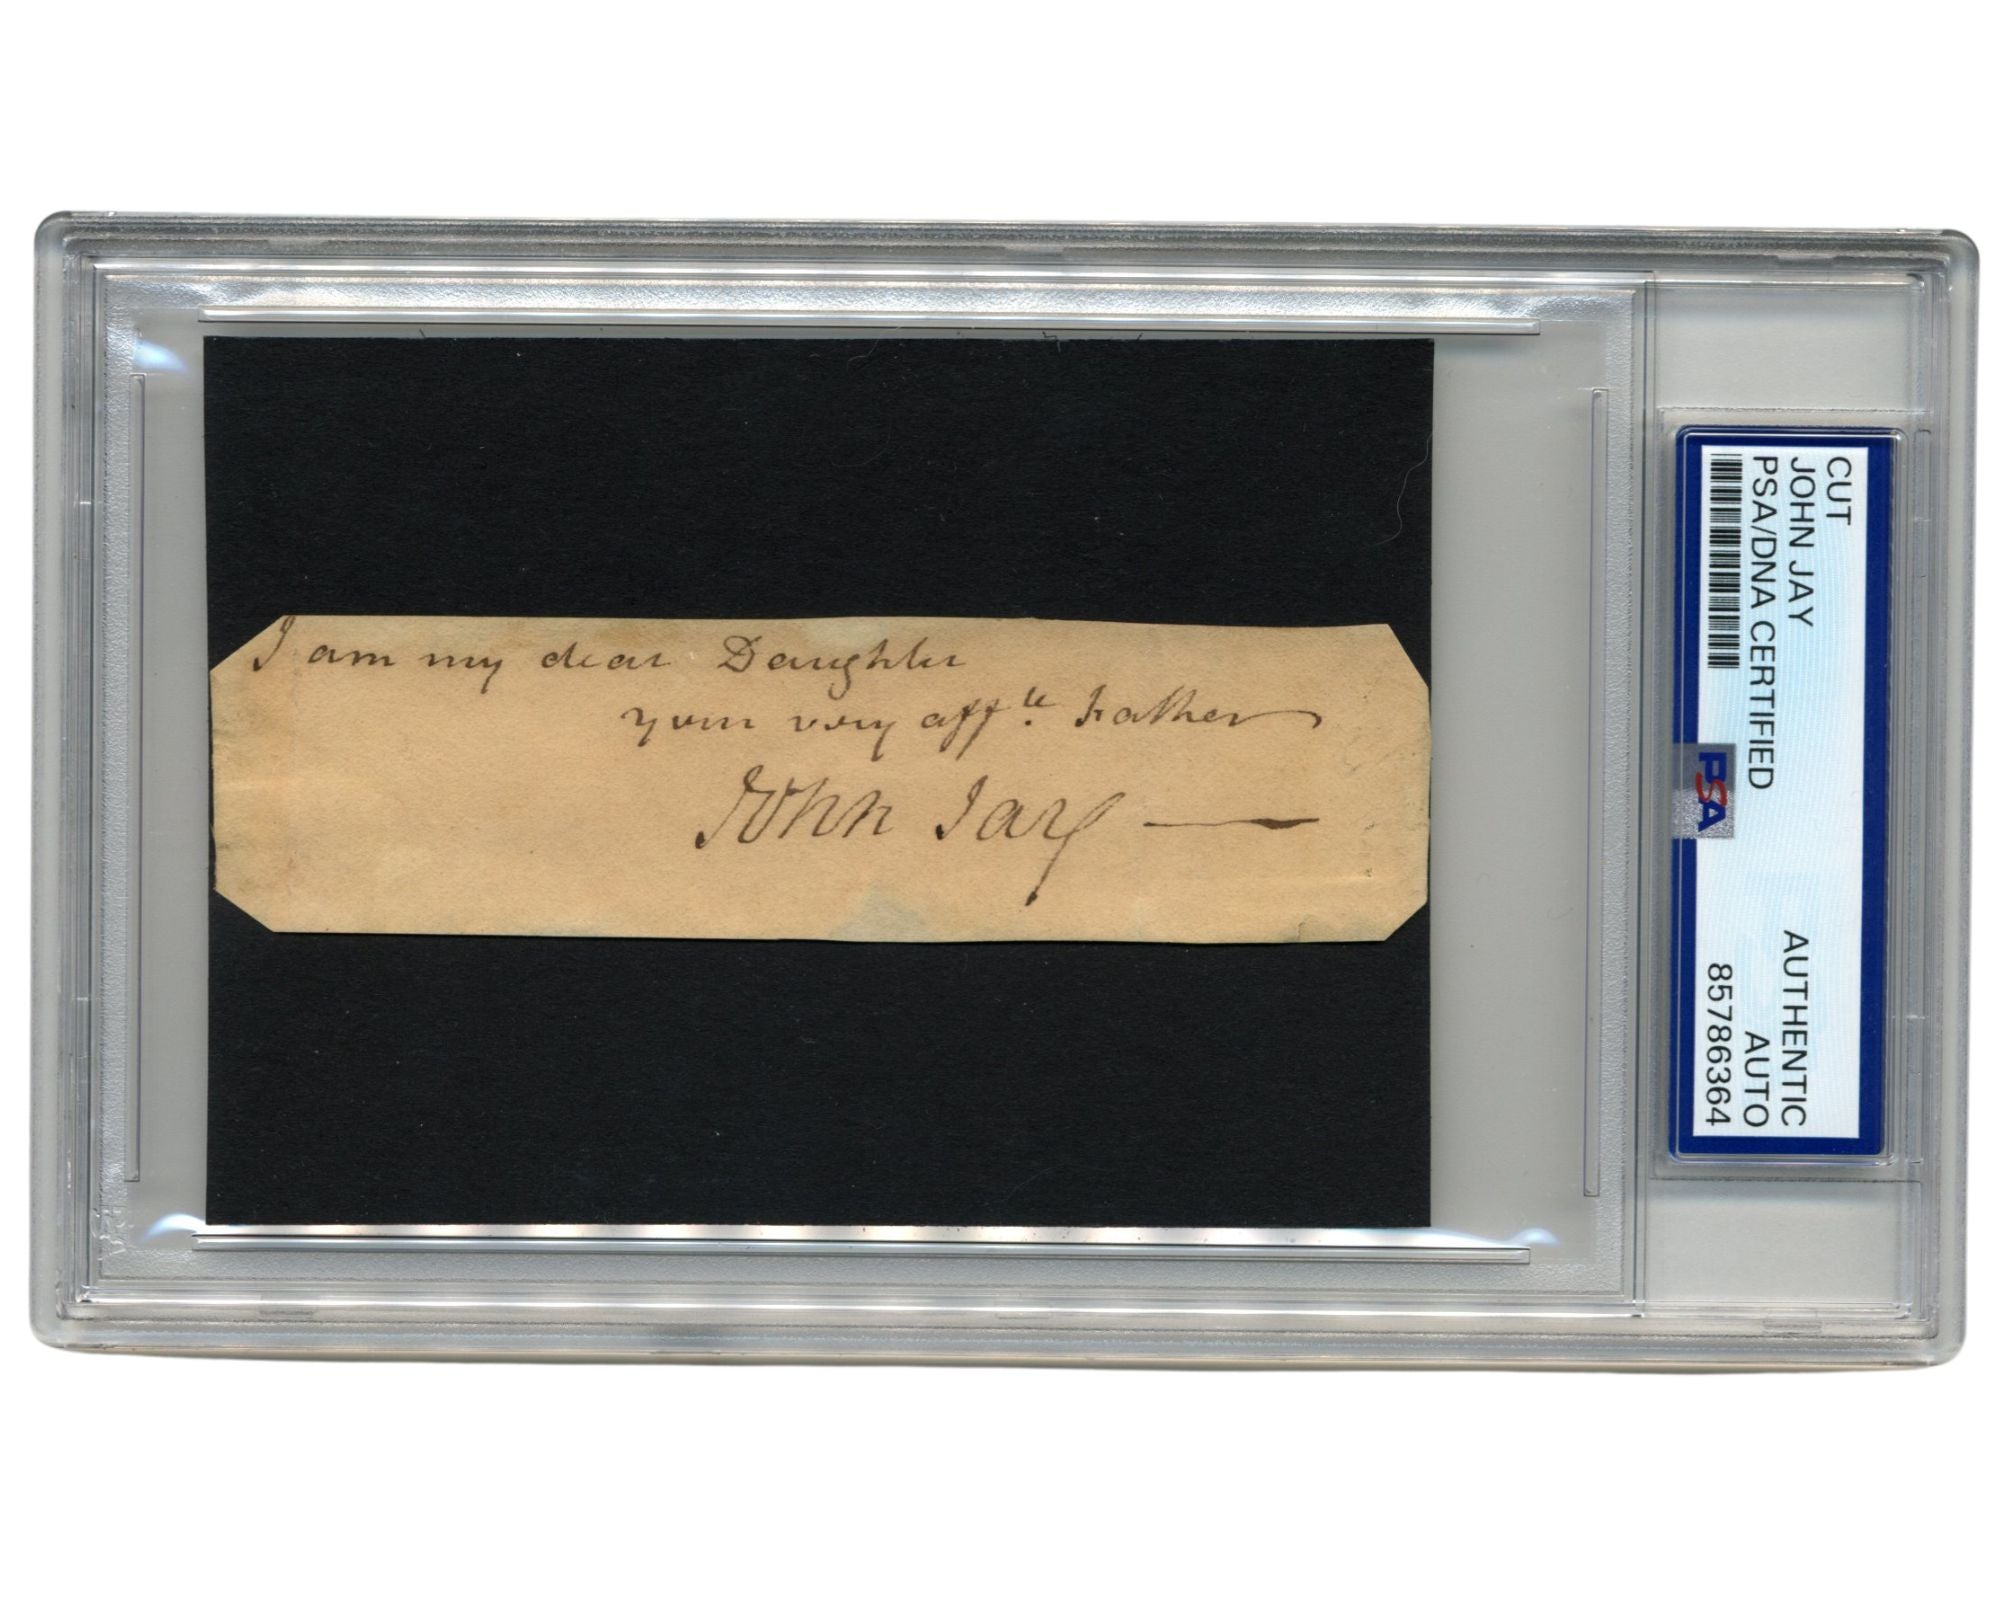 I am my dear Daughter
your very aff.te Father
John Jay —
CUT
JOHN JAY
PSA/DNA CERTIFIED
AUTHENTIC
AUTO
85786364
PSA